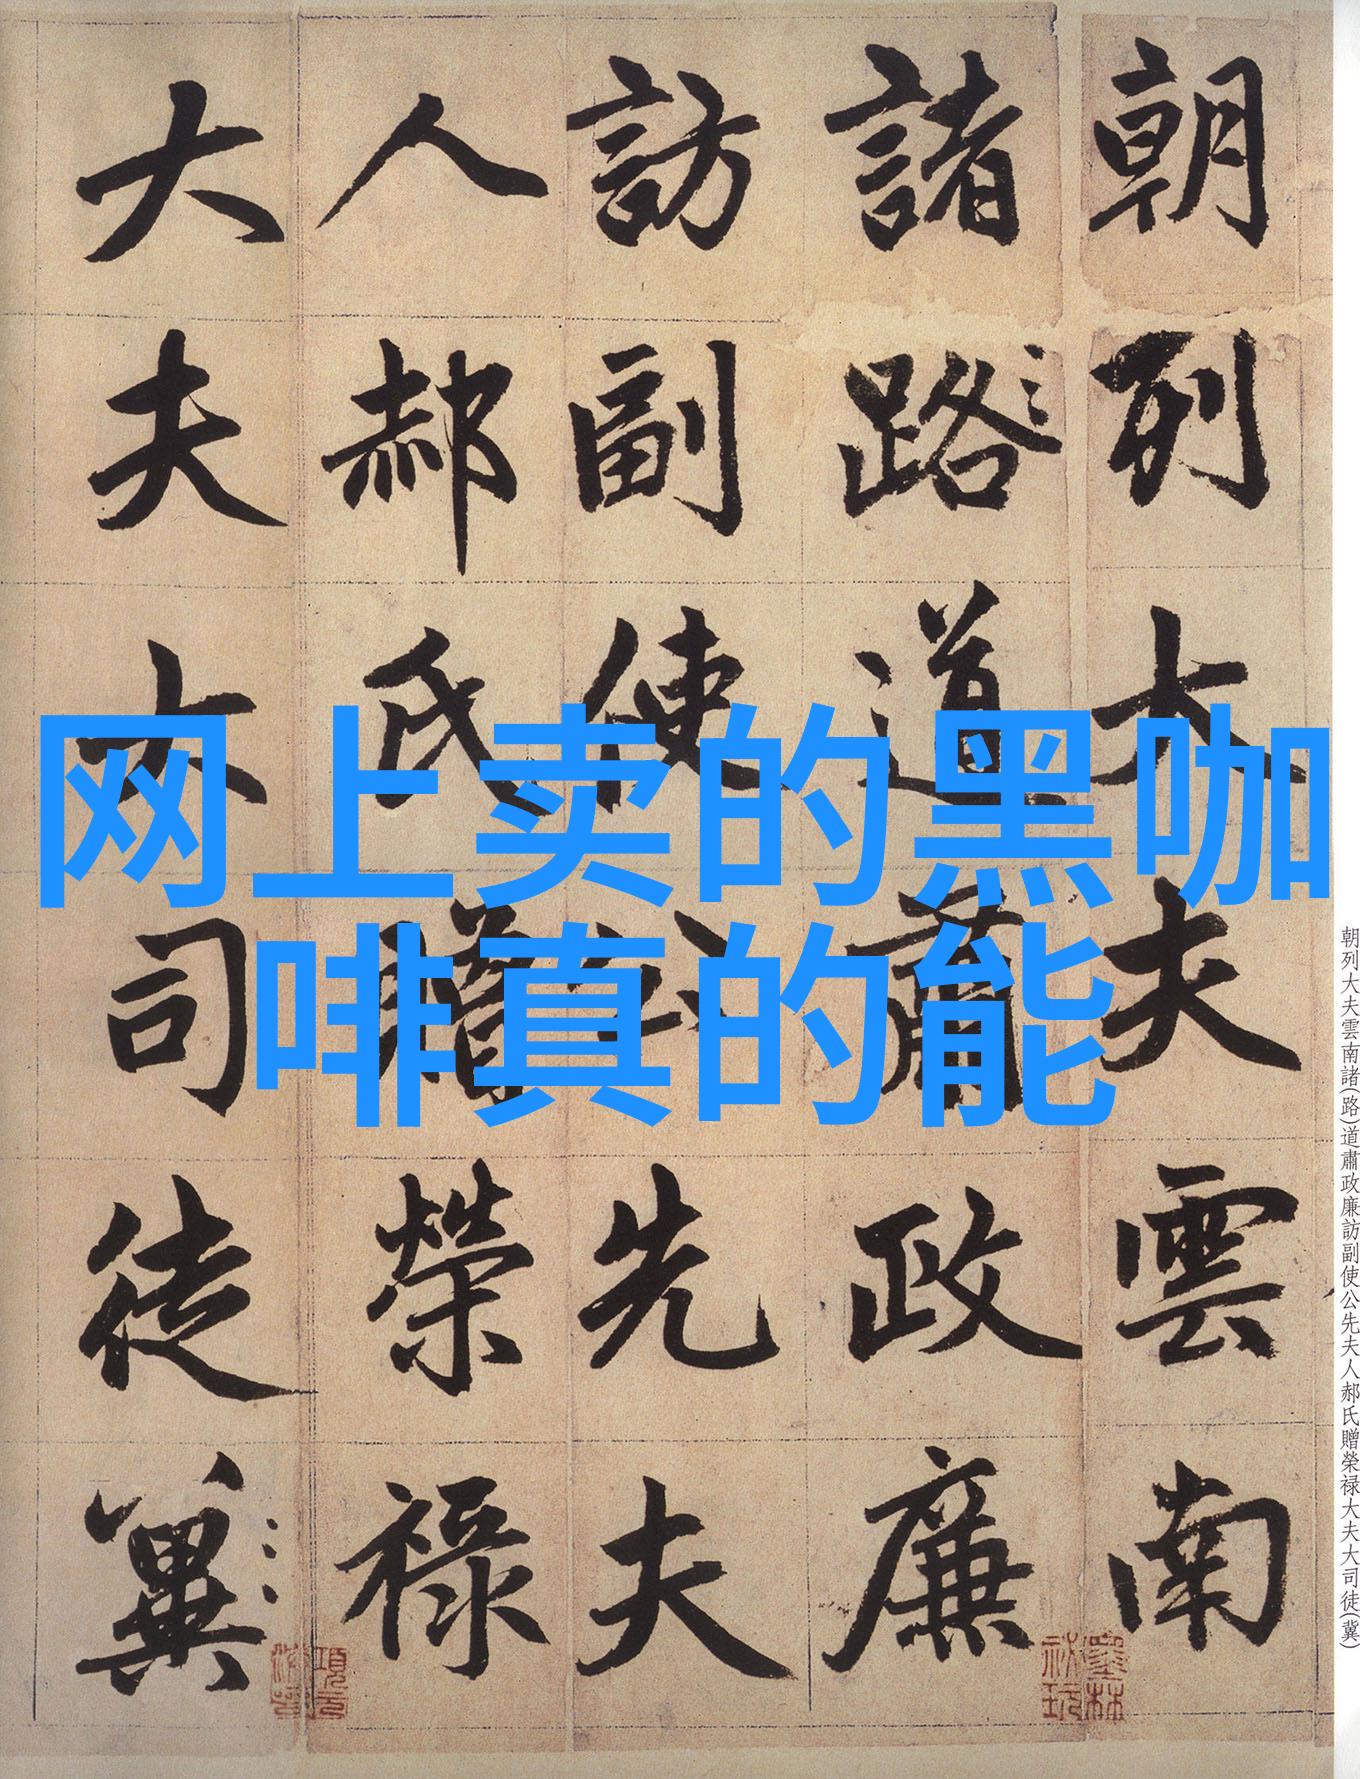 朝列大夫雲南
諸路道肅政廉
訪副使公先夫
人郝氏贈榮祿
大夫大司徒冀
网上卖的黑咖
啡真的能
朝列大夫雲南諸(路)道肅政廉訪副使公先夫人郝氏贈榮禄大夫大司徒(冀)